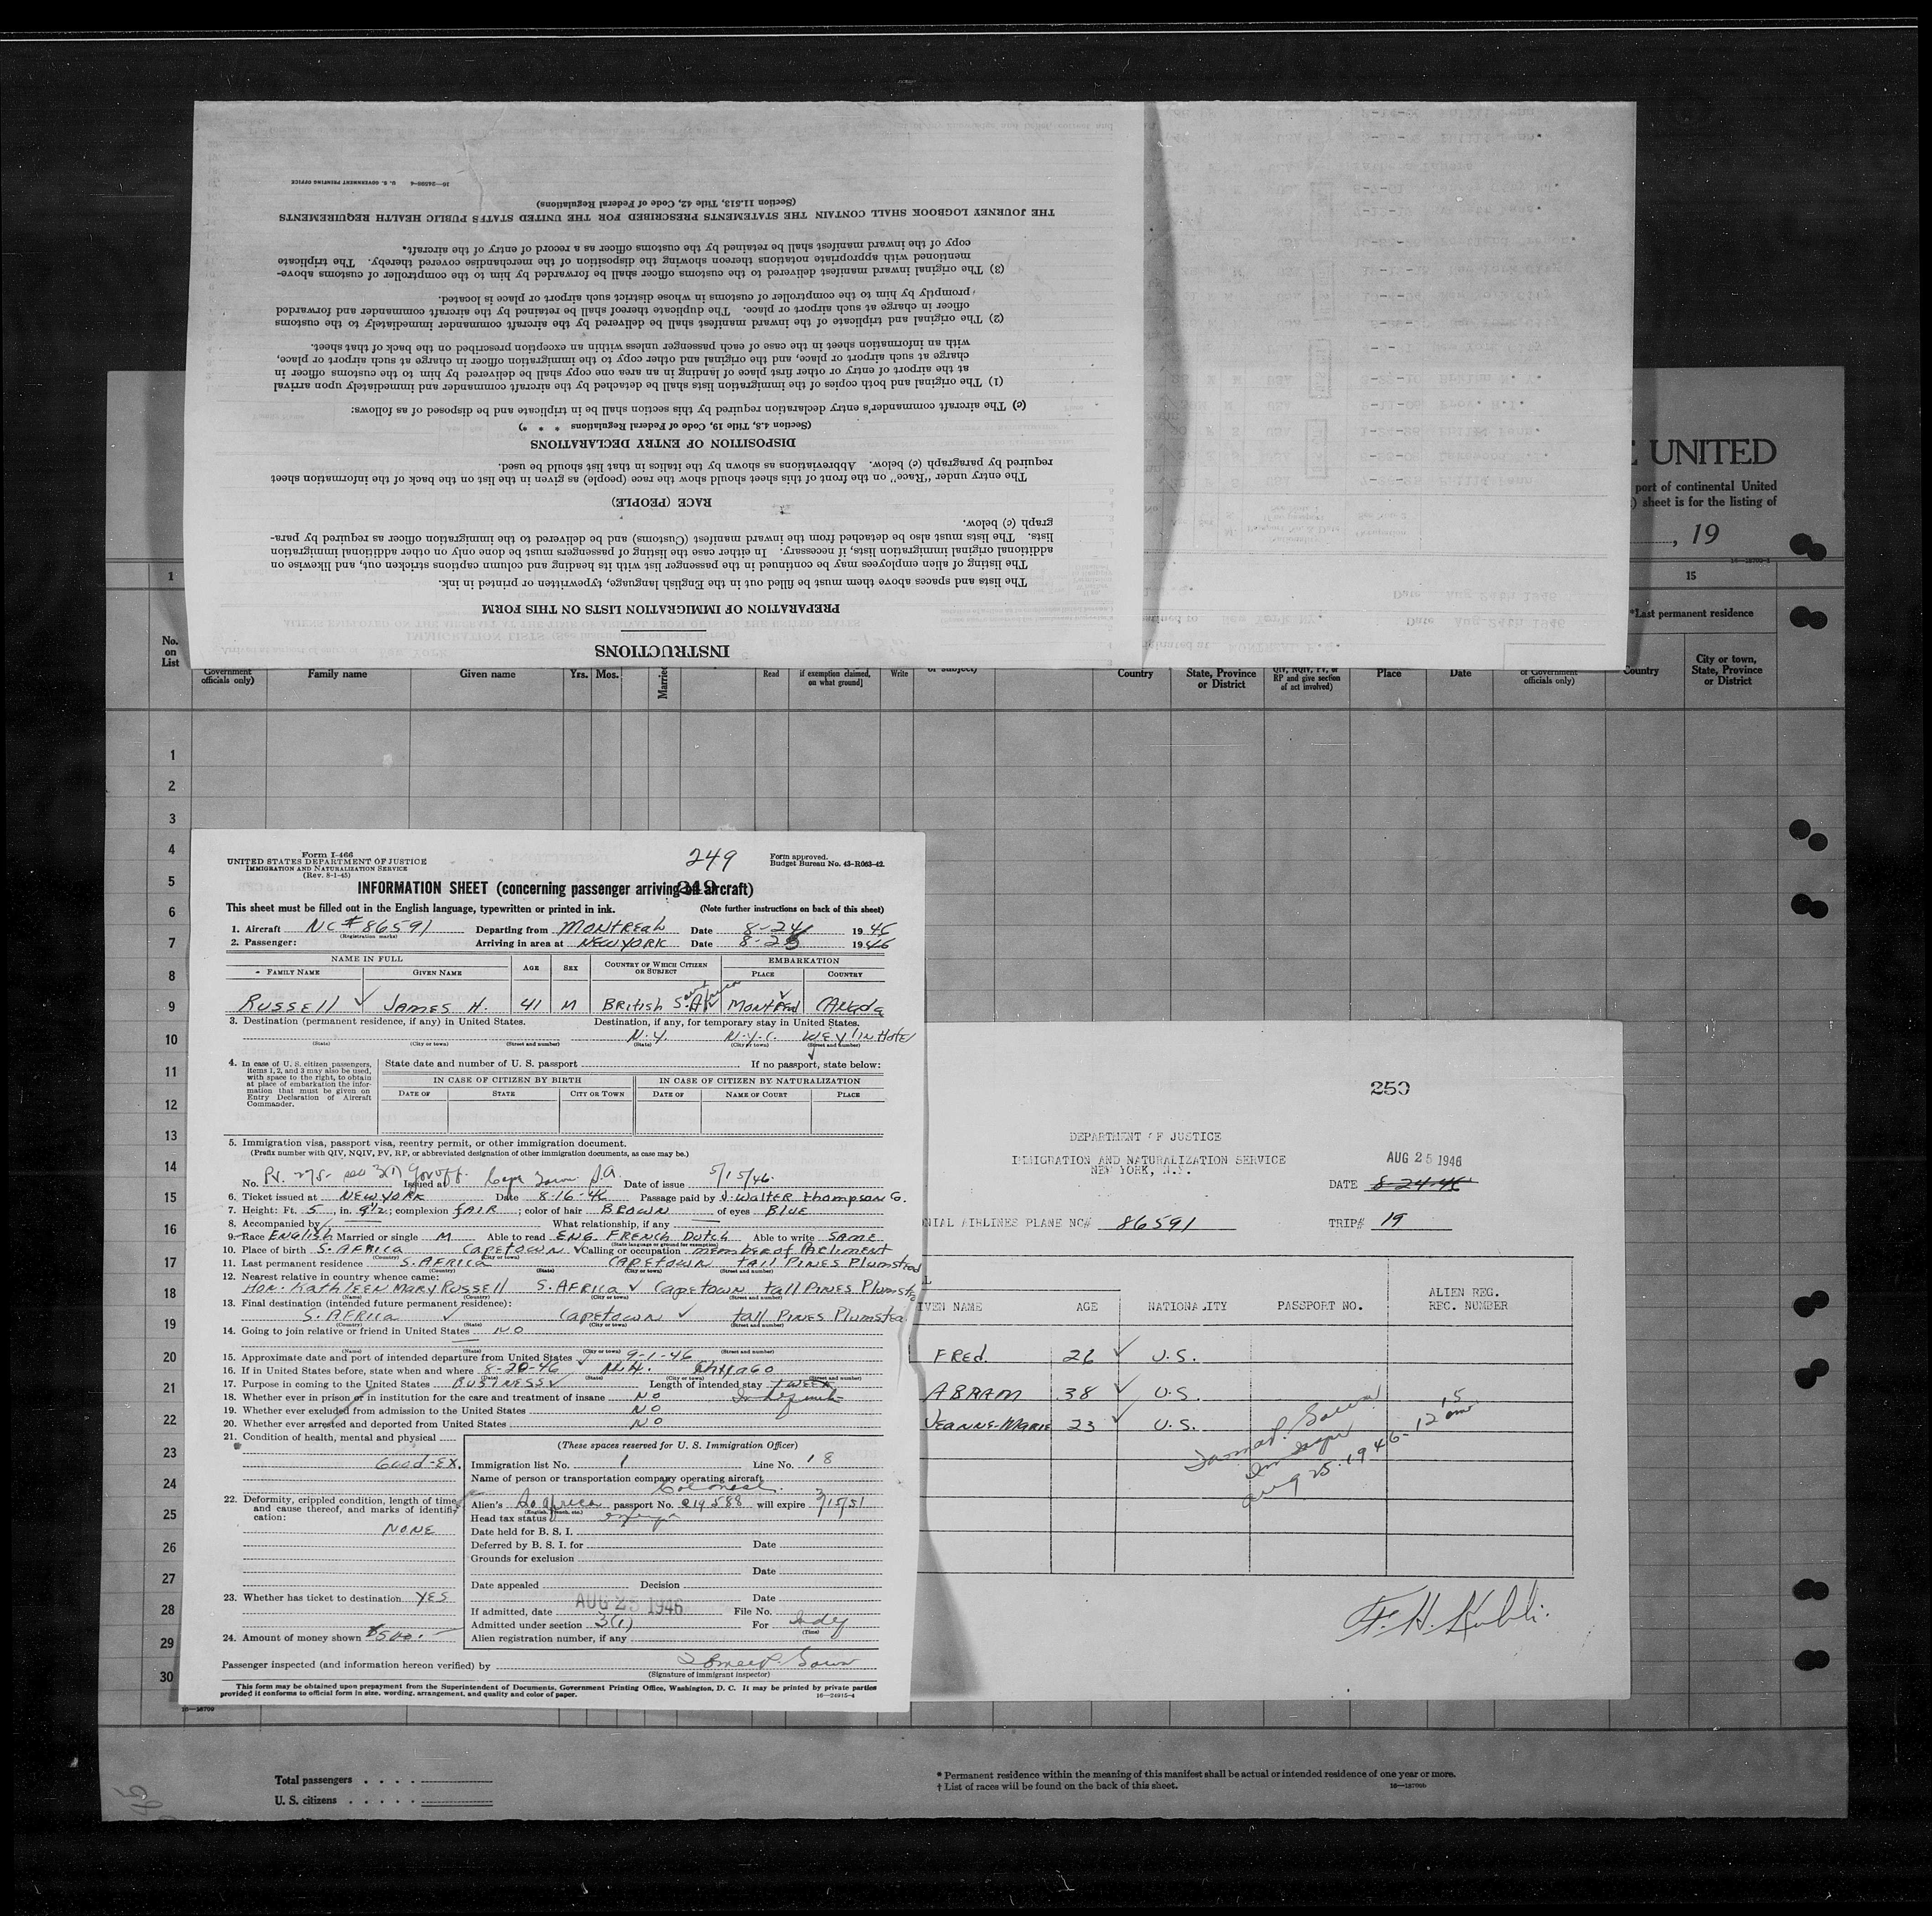 INSTRUCTIONS
PREPARATION OF IMMIGRATION LISTS ON THIS FORM
The lists and spaces above them must be filled out in the English language, typewritten or printed in ink.
The listing of alien employees may be continued in the passenger list with its heading and column captions stricken out, and likewise on
additional original immigration lists, if necessary. In either case the listing of passengers must be done only on other additional immigration
lists. The lists must also be detached from the inward manifest (Customs) and be delivered to the immigration officer as required by para-
graph (c) below.
RACE (PEOPLE)
The entry under "Race" on the front of this sheet should show the race (people) as given in the list on the back of the information sheet
required by paragraph (c) below. Abbreviations as shown by the italics in that list should be used.
DISPOSITION OF ENTRY DECLARATIONS
(Section 4.8, Title 19, Code of Federal Regulations * * *)
(c) The aircraft commander's entry declaration required by this section shall be in triplicate and be disposed of as follows:
(1) The original and both copies of the immigration lists shall be detached by the aircraft commander and immediately upon arrival
at the airport of entry or other first place of landing in an area one copy shall be delivered by him to the customs officer in
charge at such airport or place, and the original and other copy to the immigration officer in charge at such airport or place,
with an information sheet in the case of each passenger unless within an exception prescribed on the back of that sheet.
(2) The original and triplicate of the inward manifest shall be delivered by the aircraft commander immediately to the customs
officer in charge at such airport or place. The duplicate thereof shall be retained by the aircraft commander and forwarded
promptly by him to the comptroller of customs in whose district such airport or place is located.
(3) The original inward manifest delivered to the customs officer shall be forwarded by him to the comptroller of customs above-
mentioned with appropriate notations thereon showing the disposition of the merchandise covered thereby. The triplicate
copy of the inward manifest shall be retained by the customs officer as a record of entry of the aircraft.
THE JOURNEY LOGBOOK SHALL CONTAIN THE STATEMENTS PRESCRIBED FOR THE UNITED STATES PUBLIC HEALTH REQUIREMENTS
(Section 11.513, Title 42, Code of Federal Regulations)
16—24596-4 U. S. GOVERNMENT PRINTING OFFICE
E UNITED
port of continental United
) sheet is for the listing of
, 19
1
15
*Last permanent residence
No. on List
Government officials only)
Family name
Given name
Yrs. Mos.
Married
Read
if exemption claimed, on what ground]
Write
or subject)
Country
State, Province or District
QIV, NQIV, PV, or RP and give section of act involved)
Place
Date
or Government officials only)
Country
City or town, State, Province or District
1
2
3
4
5
6
7
8
9
10
11
12
13
14
15
16
17
18
19
20
21
22
23
24
25
26
27
28
29
30
Form I-466
UNITED STATES DEPARTMENT OF JUSTICE
IMMIGRATION AND NATURALIZATION SERVICE
(Rev. 8-1-45)
249
Form approved.
Budget Bureau No. 43-R063-42.
INFORMATION SHEET (concerning passenger arriving on aircraft)
249
This sheet must be filled out in the English language, typewritten or printed in ink. (Note further instructions on back of this sheet)
1. Aircraft NC#86591 Departing from MONTREAL Date 8-24 1946
(Registration marks)
2. Passenger: Arriving in area at NEW YORK Date 8-25 1946
NAME IN FULL AGE SEX COUNTRY OF WHICH CITIZEN OR SUBJECT EMBARKATION
FAMILY NAME GIVEN NAME PLACE COUNTRY
RUSSELL JAMES H. 41 M BRITISH S. Africa MONTREAL CANADA
3. Destination (permanent residence, if any) in United States. Destination, if any, for temporary stay in United States.
N.Y. N.Y.C. WEYLIN HOTEL
(State) (City or town) (Street and number) (State) (City or town) (Street and number)
4. In case of U. S. citizen passengers, items 1, 2, and 3 may also be used, with space to the right, to obtain at place of embarkation the information that must be given on Entry Declaration of Aircraft Commander.
State date and number of U. S. passport If no passport, state below:
IN CASE OF CITIZEN BY BIRTH IN CASE OF CITIZEN BY NATURALIZATION
DATE OF STATE CITY OR TOWN DATE OF NAME OF COURT PLACE
5. Immigration visa, passport visa, reentry permit, or other immigration document.
(Prefix number with QIV, NQIV, PV, RP, or abbreviated designation of other immigration documents, as case may be.)
No. PV. 275 sec 3(1) Govoff. Issued at Cape Town S.A. Date of issue 5/15/46.
6. Ticket issued at NEW YORK Date 8-16-46 Passage paid by J. Walter Thompson Co.
7. Height: Ft. 5, in. 9½; complexion FAIR; color of hair BROWN of eyes Blue
8. Accompanied by What relationship, if any
9. Race ENGLISH Married or single M Able to read ENG. FRENCH DUTCH Able to write SAME
(State language or ground for exemption)
10. Place of birth S. AFRICA CAPETOWN Calling or occupation member of PARLIMENT
(Country) (City or town)
11. Last permanent residence S. AFRICA CAPETOWN TALL PINES Plumstead
(Country) (State) (City or town) (Street and number)
12. Nearest relative in country whence came:
HON. KATHLEEN MARY RUSSELL S. AFRICA CAPETOWN TALL PINES Plumst
(Name) (Country) (City or town) (Street and number)
13. Final destination (intended future permanent residence):
S. AFRICA CAPETOWN TALL PINES Plumstea
(Country) (State) (City or town) (Street and number)
14. Going to join relative or friend in United States NO
(Name) (State) (City or town) (Street and number)
15. Approximate date and port of intended departure from United States 9-1-46
16. If in United States before, state when and where 8-20-46 Chicago
(Date) (State) (City or town) (Street and number)
17. Purpose in coming to the United States BUSINESS Length of intended stay 1 WEEK
Indefinite
18. Whether ever in prison or in institution for the care and treatment of insane NO
19. Whether ever excluded from admission to the United States NO
20. Whether ever arrested and deported from United States NO
21. Condition of health, mental and physical
Good-EX.
22. Deformity, crippled condition, length of time and cause thereof, and marks of identification:
NONE
23. Whether has ticket to destination YES
24. Amount of money shown $500.
(These spaces reserved for U. S. Immigration Officer)
Immigration list No. 1 Line No. 18
Name of person or transportation company operating aircraft
Colonial
Alien's So. Africa passport No. C14588 will expire 3/15/51
(English, French, etc.)
Head tax status exempt
Date held for B. S. I.
Deferred by B. S. I. for Date
Grounds for exclusion
Date
Date appealed Decision
Date
If admitted, date AUG 25 1946 File No.
Admitted under section 3(1) For Indef
(Time)
Alien registration number, if any
Passenger inspected (and information hereon verified) by
(Signature of immigrant inspector)
This form may be obtained upon prepayment from the Superintendent of Documents, Government Printing Office, Washington, D. C. It may be printed by private parties
provided it conforms to official form in size, wording, arrangement, and quality and color of paper. 16—24915-4
250
DEPARTMENT OF JUSTICE
IMMIGRATION AND NATURALIZATION SERVICE
NEW YORK, N.Y.
AUG 25 1946
DATE 8-24-46
NIAL AIRLINES PLANE NC# 86591 TRIP# 19
IVEN NAME AGE NATIONALITY PASSPORT NO. ALIEN REG. REG. NUMBER
FRED. 26 U.S.
ABRAM 38 U.S.
JEANNE-MARIE 23 U.S.
Aug 25. 1946-
F. H.
16—18709
Total passengers . . . .
U. S. citizens . . . . .
* Permanent residence within the meaning of this manifest shall be actual or intended residence of one year or more.
† List of races will be found on the back of this sheet. 16—18709b